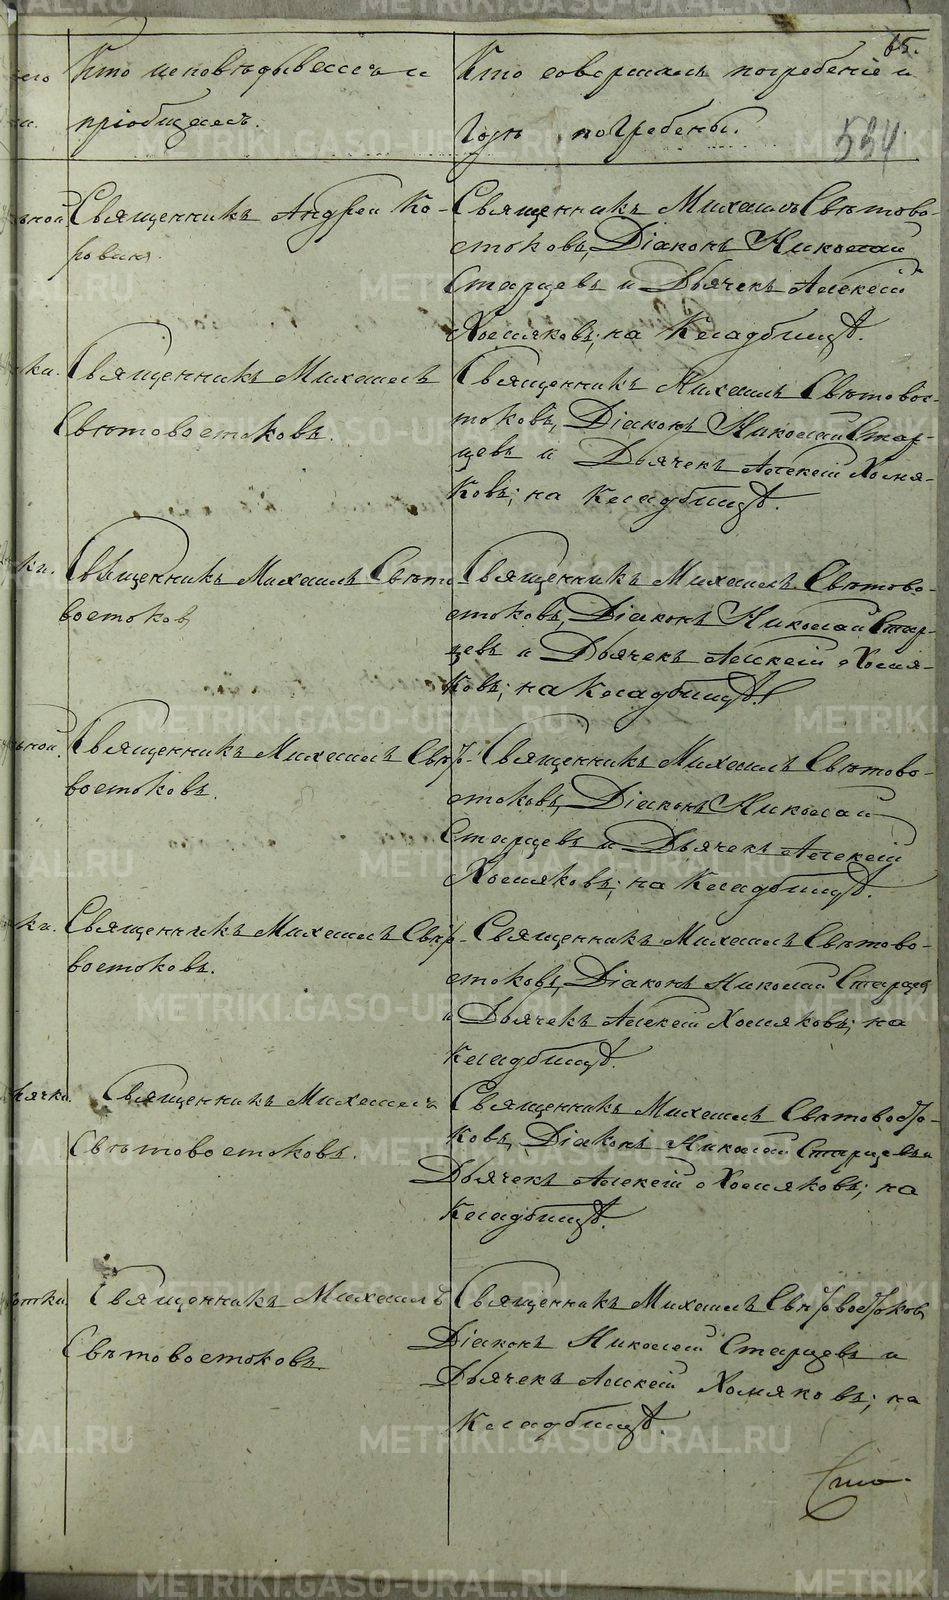 65.
534.
Кто исповѣдывалъ и
пріобщалъ.
Кто совершалъ погребеніе и
гдѣ погребены.
ьной
Священникъ Андрей Ко-
ровинъ.
Священникъ Михаилъ Свѣтово-
стоковъ, Діаконъ Николай
Старцевъ и Дьячекъ Алексій
Хомяковъ; на Кладбищѣ.
ки.
Священникъ Михаилъ
Свѣтовостоковъ.
Священникъ Михаилъ Свѣтовос-
токовъ, Діаконъ Николай Стар-
цевъ и Дьячекъ Алексій Хомя-
ковъ; на Кладбищѣ.
ки.
Священникъ Михаилъ Свѣто
востоковъ
Священникъ Михаилъ Свѣтово-
стоковъ, Діаконъ Николай Стар-
цевъ и Дьячекъ Алексій Хомя-
ковъ; на Кладбищѣ.
ьной.
Священникъ Михаилъ Свѣт-
востоковъ.
Священникъ Михаилъ Свѣтово-
стоковъ, Діаконъ Николай
Старцевъ и Дьячекъ Алексій
Хомяковъ; на Кладбищѣ.
ки.
Священникъ Михаилъ Свѣт-
востоковъ.
Священникъ Михаилъ Свѣтово-
стоковъ, Діаконъ Николай Старцев
и Дьячекъ Алексій Хомяковъ; на
Кладбищѣ.
ячки.
Священникъ Михаилъ
Свѣтовостоковъ.
Священникъ Михаилъ Свѣтовосто-
ковъ, Діаконъ Николай Старцевъ и
Дьячекъ Алексій Хомяковъ; на
Кладбищѣ.
отки.
Священникъ Михаилъ
Свѣтовостоковъ.
Священникъ Михаилъ Свѣтовостоковъ
Діаконъ Николай Старцевъ и
Дьячекъ Алексій Хомяковъ; на
Кладбищѣ.
METRIKI.GASO-URAL.RU